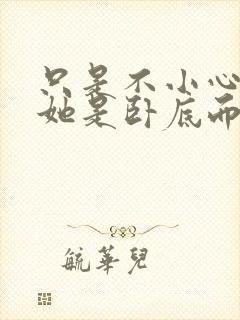 只是不小心
她是卧底而
毓華兒